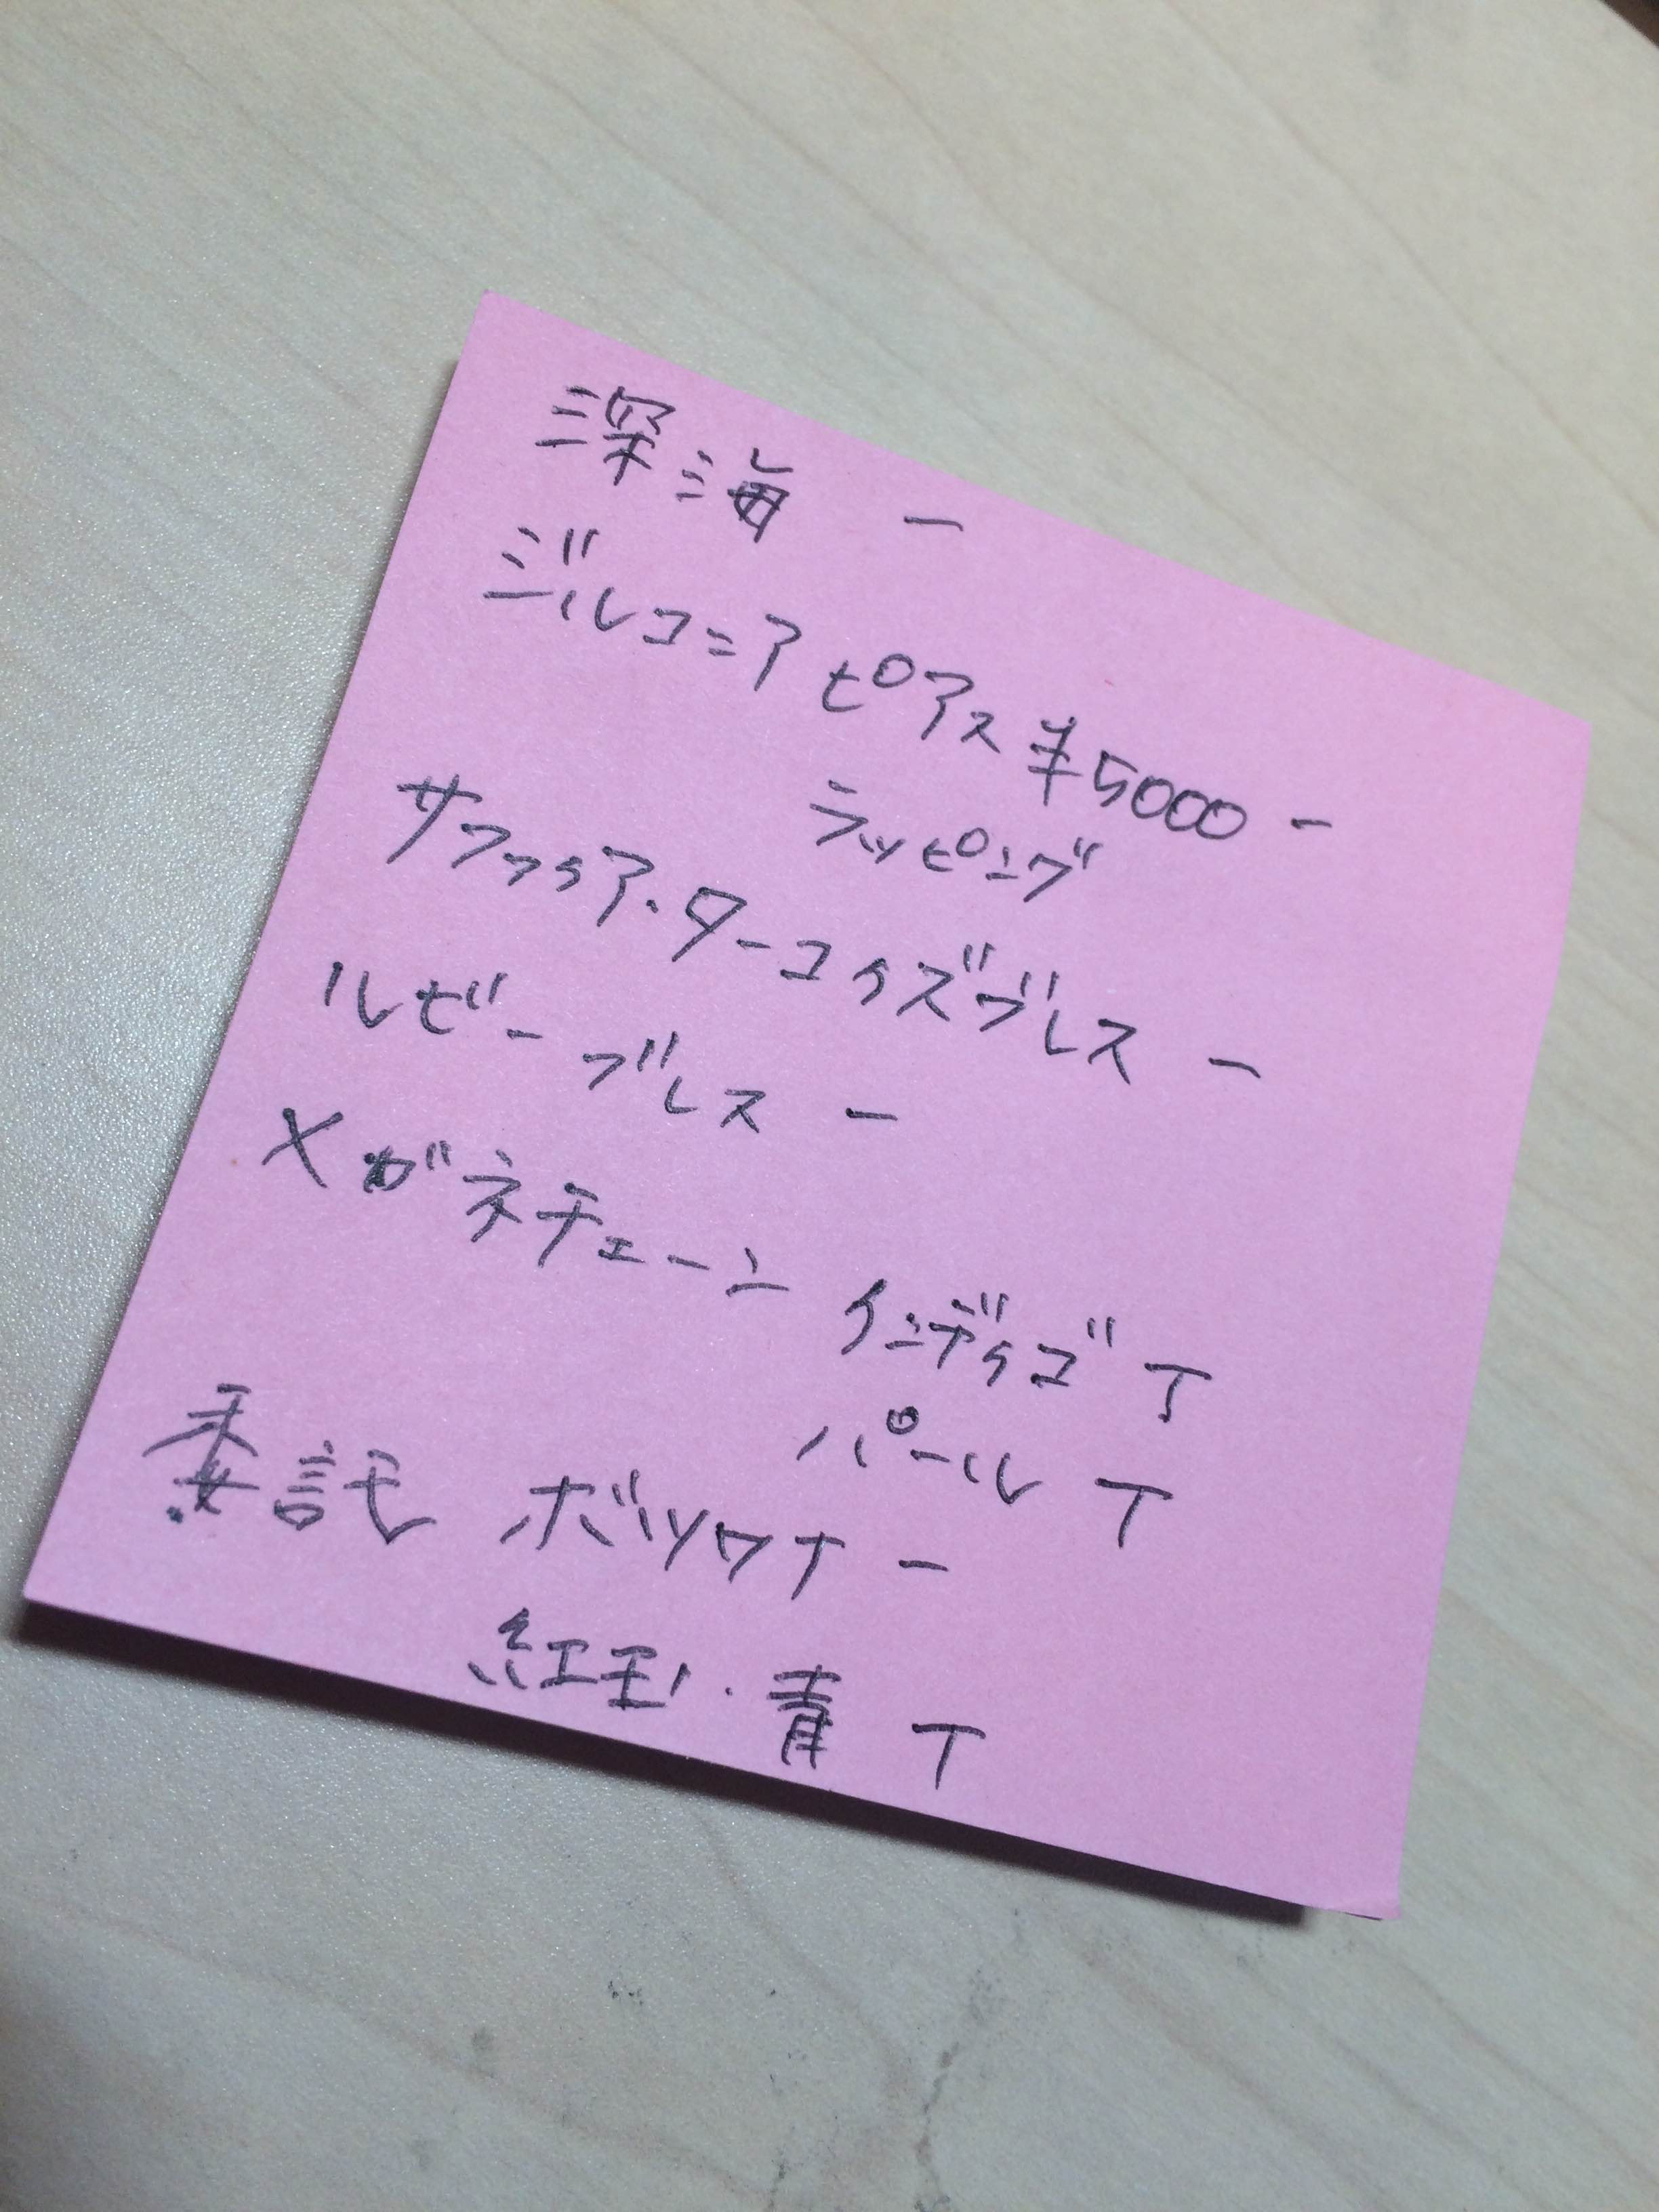 深海 一
ジルコニア ピアス ¥5000 一
ラッピング
サファイア・ターコイズブレス 一
ルビー ブレス 一
メガネチェーン インディゴ T
パール T
委託 ボツワナ 一
紅玉・青 T